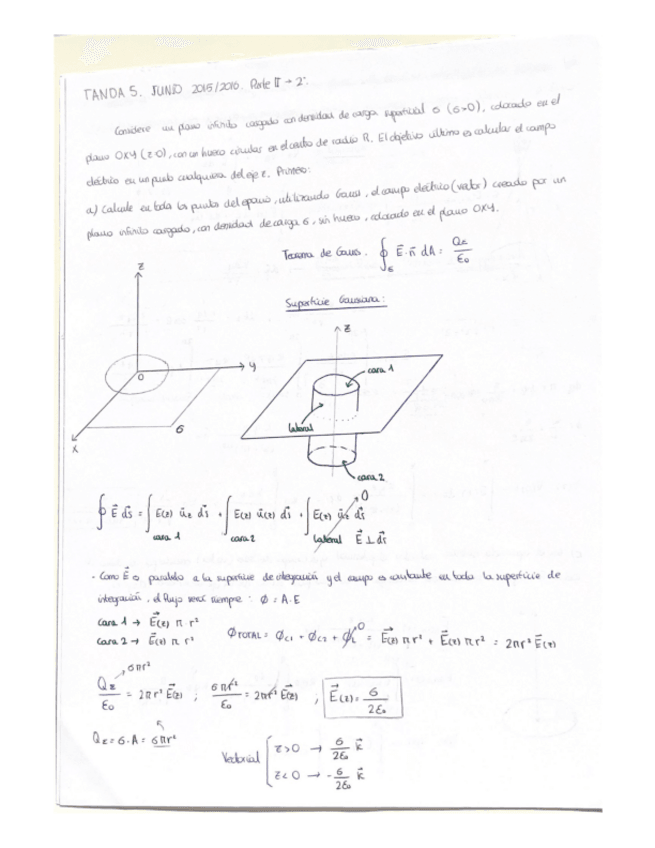 TANDA 5. JUNIO 2015/2016. Parte II → 2º.
Considere un plano infinito cargado con densidad de carga superficial σ (σ>0), colocado en el
plano OXY (z=0), con un hueco circular en el centro de radio R. El objetivo último es calcular el campo
eléctrico en un punto cualquiera del eje z. Primero:
a) Calcule en todos los puntos del espacio, utilizando Gauss, el campo eléctrico (vector) creado por un
plano infinito cargado, con densidad de carga σ, sin hueco, colocado en el plano OXY.
Teorema de Gauss. ∮ E⃗·n⃗ dA = Qε/ε₀
Superficie Gaussiana:
z
O
y
x
σ
z
cara 1
lateral
cara 2
∮ E⃗ ds⃗ = ∫ E(z) u⃗z ds⃗ + ∫ E(z) u⃗(z) ds⃗ + ∫ E(z) u⃗z ds⃗ 0
cara 1 cara 2 lateral E⃗ ⊥ ds⃗
· Como E⃗ es paralelo a la superficie de integración y el campo es constante en toda la superficie de
integración, el flujo será siempre: Φ = A·E
cara 1 → E⃗(z) π r²
cara 2 → E⃗(z) π r²
ΦTOTAL = ΦC1 + ΦC2 + ΦL 0 = E⃗(z) π r² + E⃗(z) π r² = 2πr² E⃗(z)
σπr²
Qε/ε₀ = 2πr² E⃗(z) ; σπr²/ε₀ = 2πr² E⃗(z) ; E⃗(z) = σ/2ε₀
Qε = σ·A = σπr²
Vectorial
z>0 → σ/2ε₀ k⃗
z<0 → -σ/2ε₀ k⃗